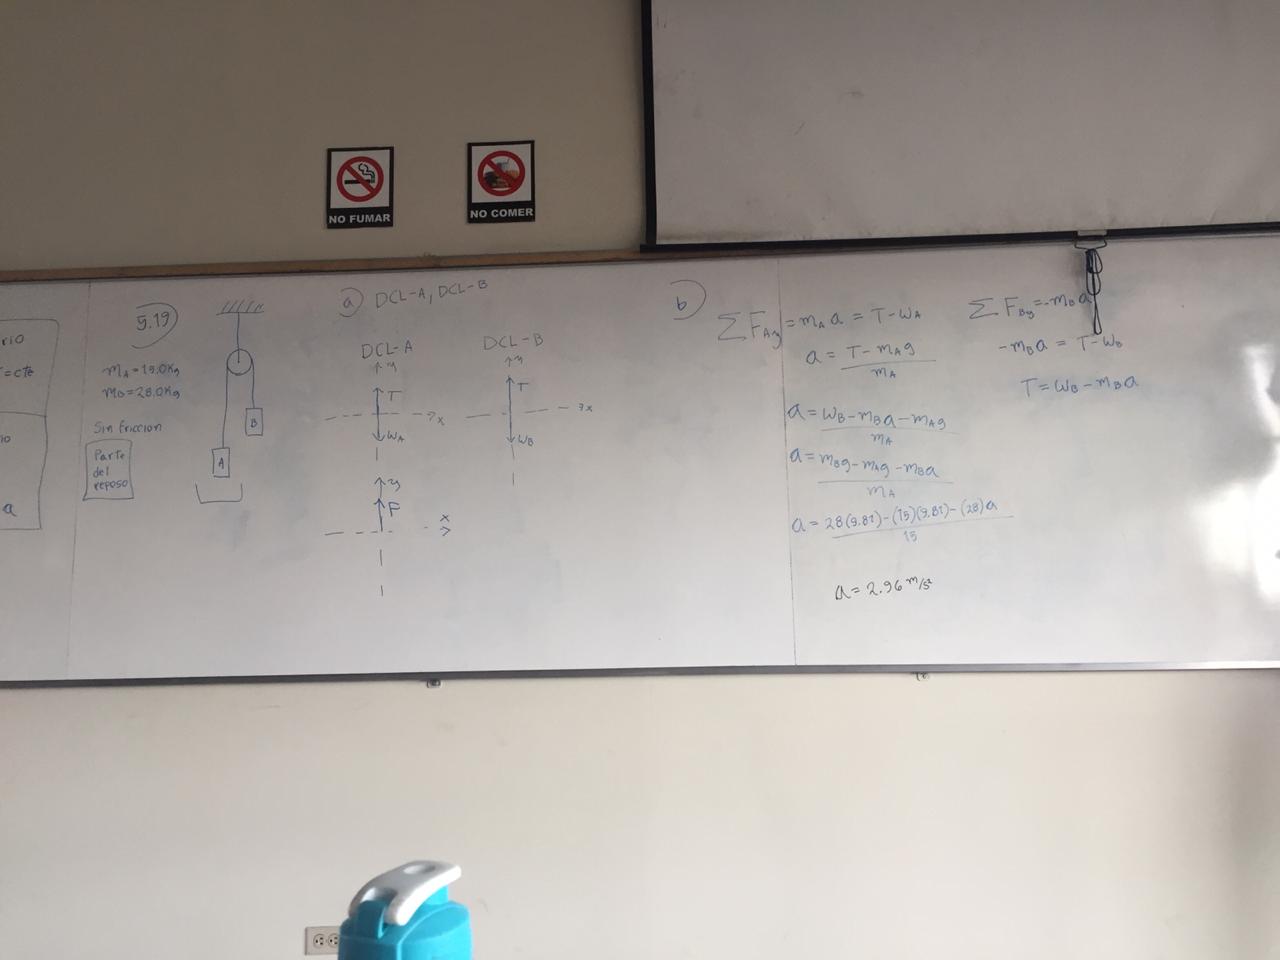 NO FUMAR
NO COMER
rio
=cte
io
a
5.19)
mA=15.0Kg
mB=28.0Kg
Sin friccion
Parte
del
reposo
B
A
a) DCL-A, DCL-B
DCL-A
y
T
x
WA
y
F
x
DCL-B
y
T
x
WB
b)
ΣFAy = mA a = T-WA
a = T-mAg / mA
a = WB-mBa-mAg / mA
a = mBg-mAg-mBa / mA
a = 28(9.81)-(15)(9.81)-(28)a / 15
a = 2.96 m/s²
ΣFBy=-mBa
-mBa = T-WB
T = WB-mBa